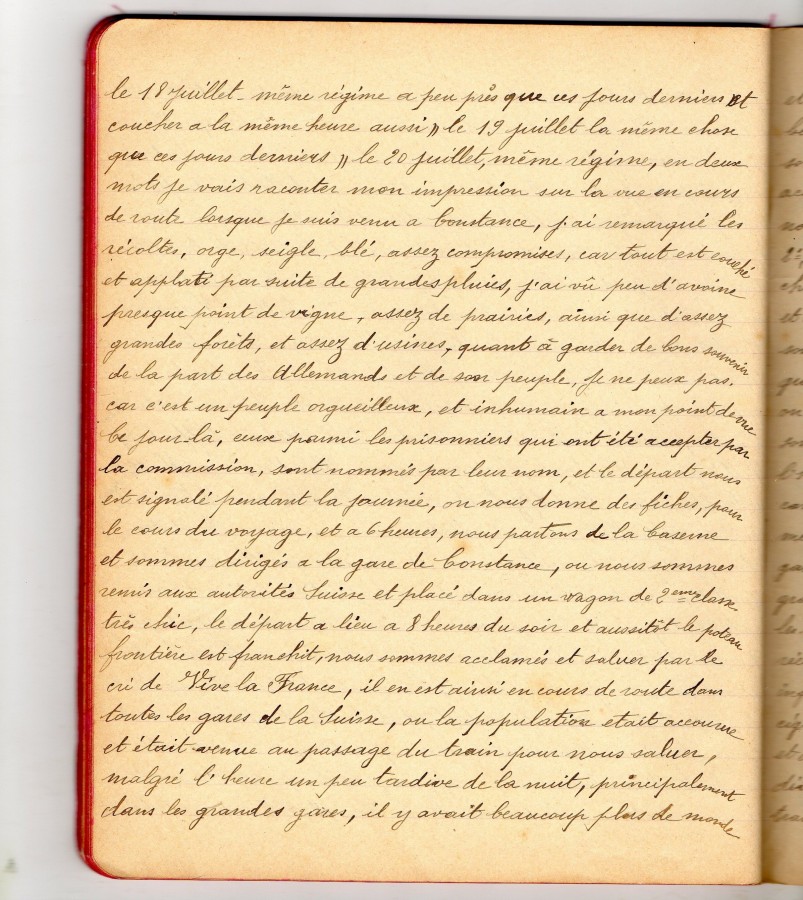 le 18 Juillet - même régime a peu près que ces jours derniers et
coucher a la même heure aussi,, le 19 juillet la même chose
que ces jours derniers ,, le 20 juillet, même régime, en deux
mots je vais raconter mon impression sur la vue en cours
de route lorsque je suis venu a Constance, j'ai remarqué les
récoltes, orge, seigle, blé, assez compromises, car tout est couché
et applati par suite de grandes pluies, j'ai vû peu d'avoine
presque point de vigne, assez de prairies, ainsi que d'assez
grandes forêts, et assez d'usines, quant à garder de bons souvenir
de la part des Allemands et de son peuple, je ne peux pas.
car c'est un peuple orgueilleux, et inhumain a mon point de vue
Ce jour-là, ceux parmi les prisonniers qui ont été accepter par
la commission, sont nommés par leur nom, et le départ nous
est signalé pendant la journée, on nous donne des fiches, pour
le cours du voyage, et a 6 heures, nous partons de la Caserne
et sommes dirigés a la gare de Constance, ou nous sommes
remis aux autorités Suisse et placé dans un wagon de 2ème classe
très chic, le départ a lieu a 8 heures du soir et aussitôt le poteau
frontière est franchit, nous sommes acclamés et saluer par le
cri de Vive la France, il en est ainsi en cours de route dans
toutes les gares de la Suisse, ou la population etait accourue
et était venue au passage du train pour nous saluer,
malgré l'heure un peu tardive de la nuit, principalement
dans les grandes gares, il y avait beaucoup plus de monde